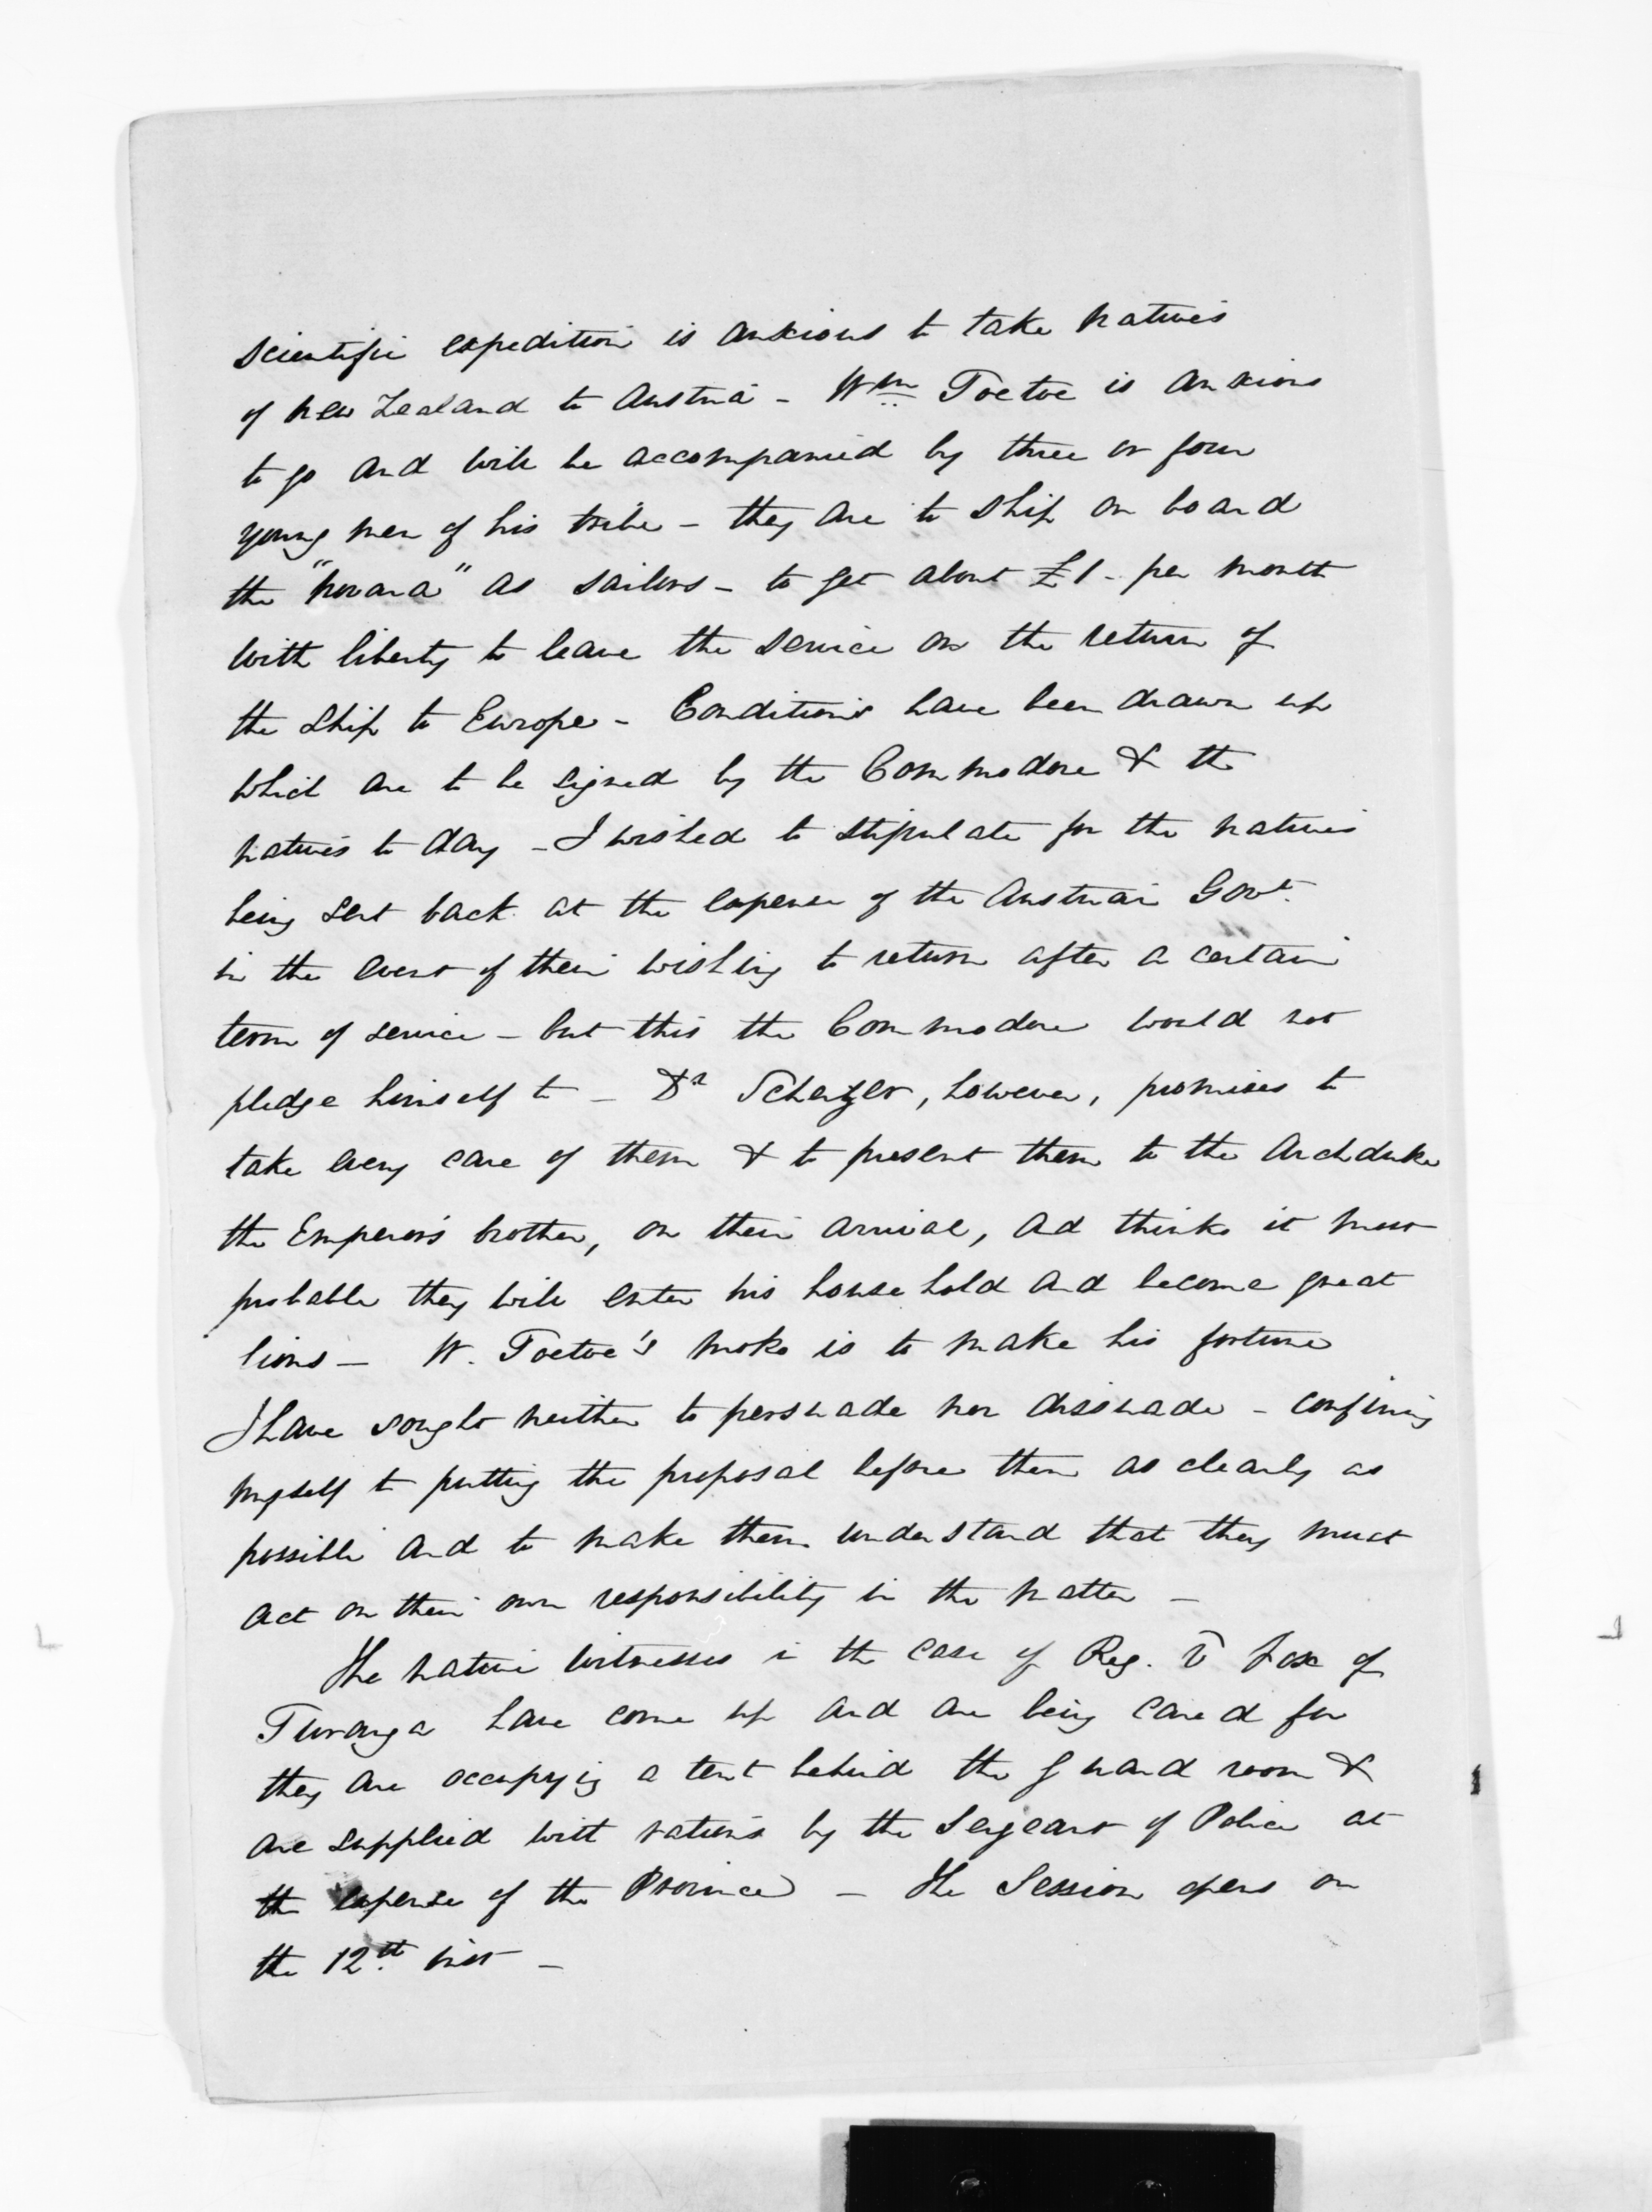 scientific expedition is anxious to take natives
of New Zealand to Austria - Wm Toetoe is anxious
to go and will be accompanied by three or four
young men of his tribe - they are to ship on board
the "Novara" as sailors - to get about £1 - per month
with liberty to leave the service on the return of
the Ship to Europe - Conditions have been drawn up
which are to be signed by the Commodore & the
natives to day - I wished to stipulate for the natives
being sent back at the expense of the Austrian Govt.
in the event of their wishing to return after a certain
term of service - but this the Commodore would not
pledge himself to - Dr Scherzer, however, promises to
take every care of them & to present them to the Archduke
the Emperor's brother, on their arrival, and thinks it most
probable they will enter his household and become great
lions - W. Toetoe's is to make his fortune
I have sought neither to persuade nor dissuade - confining
myself to putting the proposal before them as clearly as
possible and to make them understand that they must
act on their own responsibility in the matter -
The native witnesses in the case of Reg. v Fox of
Turanga have come up and are being cared for
they are occupying a tent behind the guard room &
are supplied with rations by the Sergeant of Police at
the expense of the Province - The Session opens on
the 12th inst -